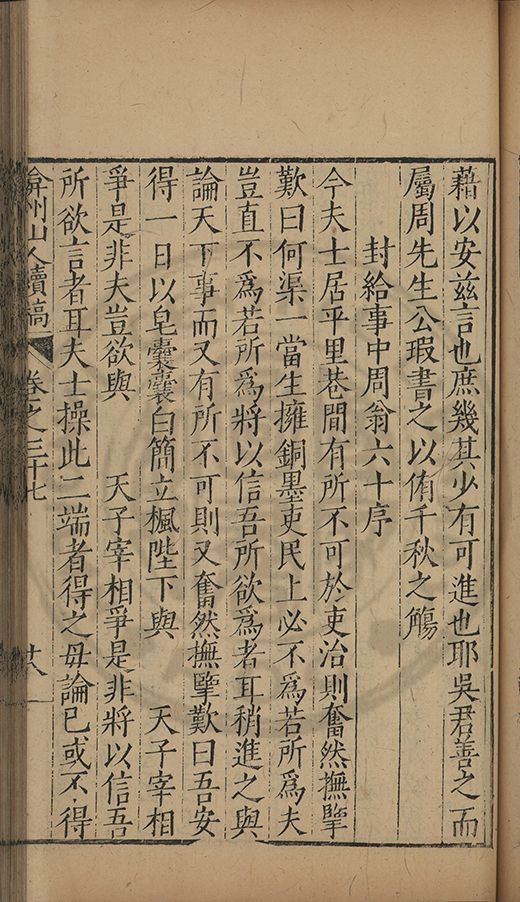 藉以安茲言也庶幾其少有可進也耶吳君善之而
屬周先生公瑕書之以侑千秋之觴
封給事中周翁六十序
今夫士居平里巷間有所不可於吏治則奮然撫擥
歎曰何渠一當生擁銅墨吏民上必不為若所為夫
豈直不為若所為將以信吾所欲為者耳稍進之與
論天下事而又有所不可則又奮然撫擥歎曰吾安
得一日以皂囊囊白簡立楓陛下與 天子宰相
爭是非夫豈欲與 天子宰相爭是非將以信吾
所欲言者耳夫士操此二端者得之毋論已或不得
弇州山人續稿 卷之三十七 十八